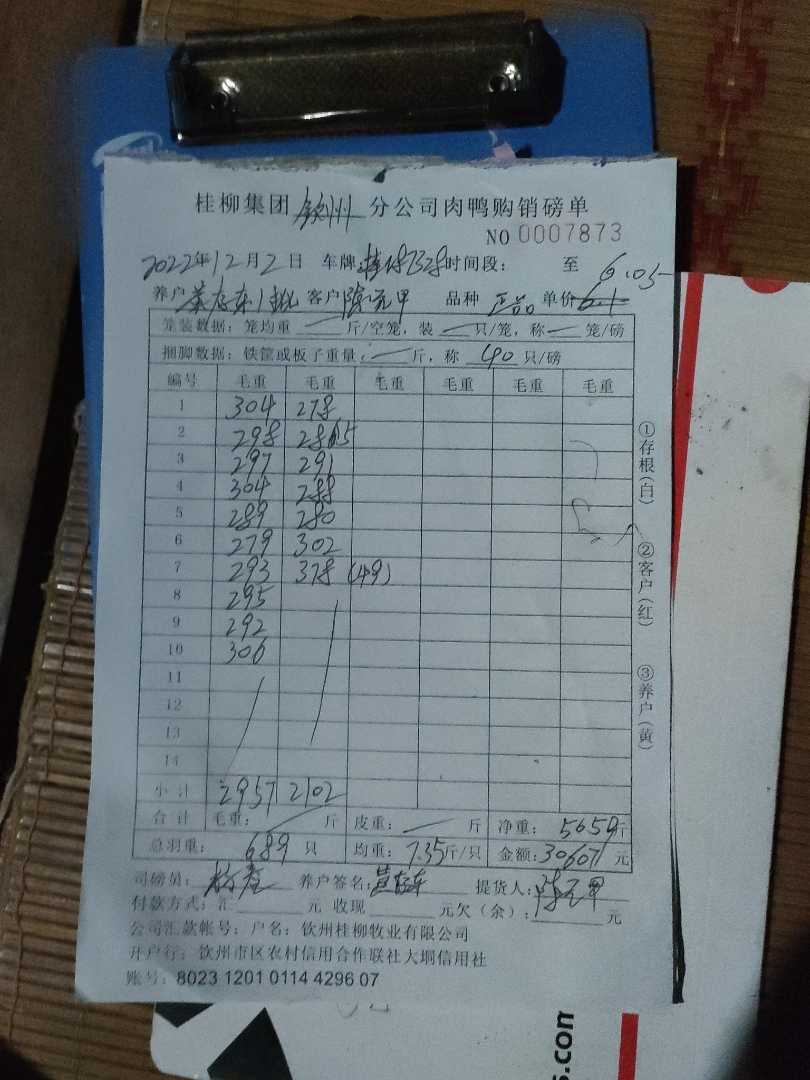 桂柳集团 钦州 分公司肉鸭购销磅单
NO 0007873
2022年12月2日 车牌 时间段： 至
6.05
养户 客户 陈元甲 品种 正品 单价 6.1
笼装数据：笼均重 — 斤/空笼，装 — 只/笼，称 — 笼/磅
捆脚数据：铁筐或板子重量： — 斤，称 40 只/磅
编号 毛重 毛重 毛重 毛重 毛重 毛重
1 304 278
2 298 285
3 297 291
4 304 288
5 289 280
6 279 302
7 293 378 (49)
8 295
9 292
10 306
11
12
13
14
小计 2957 2102
合计 毛重： 斤 皮重： — 斤 净重： 5059斤
总羽重： 689 只 均重： 7.35斤/只 金额：30607元
司磅员： 养户签名： 提货人：陈元甲
付款方式：汇 元 收现 元欠（余）： 元
公司汇款帐号：户名：钦州桂柳牧业有限公司
开户行：钦州市区农村信用合作联社大垌信用社
账号：8023 1201 0114 4296 07
①存根(白)
②客户(红)
③养户(黄)
s.com